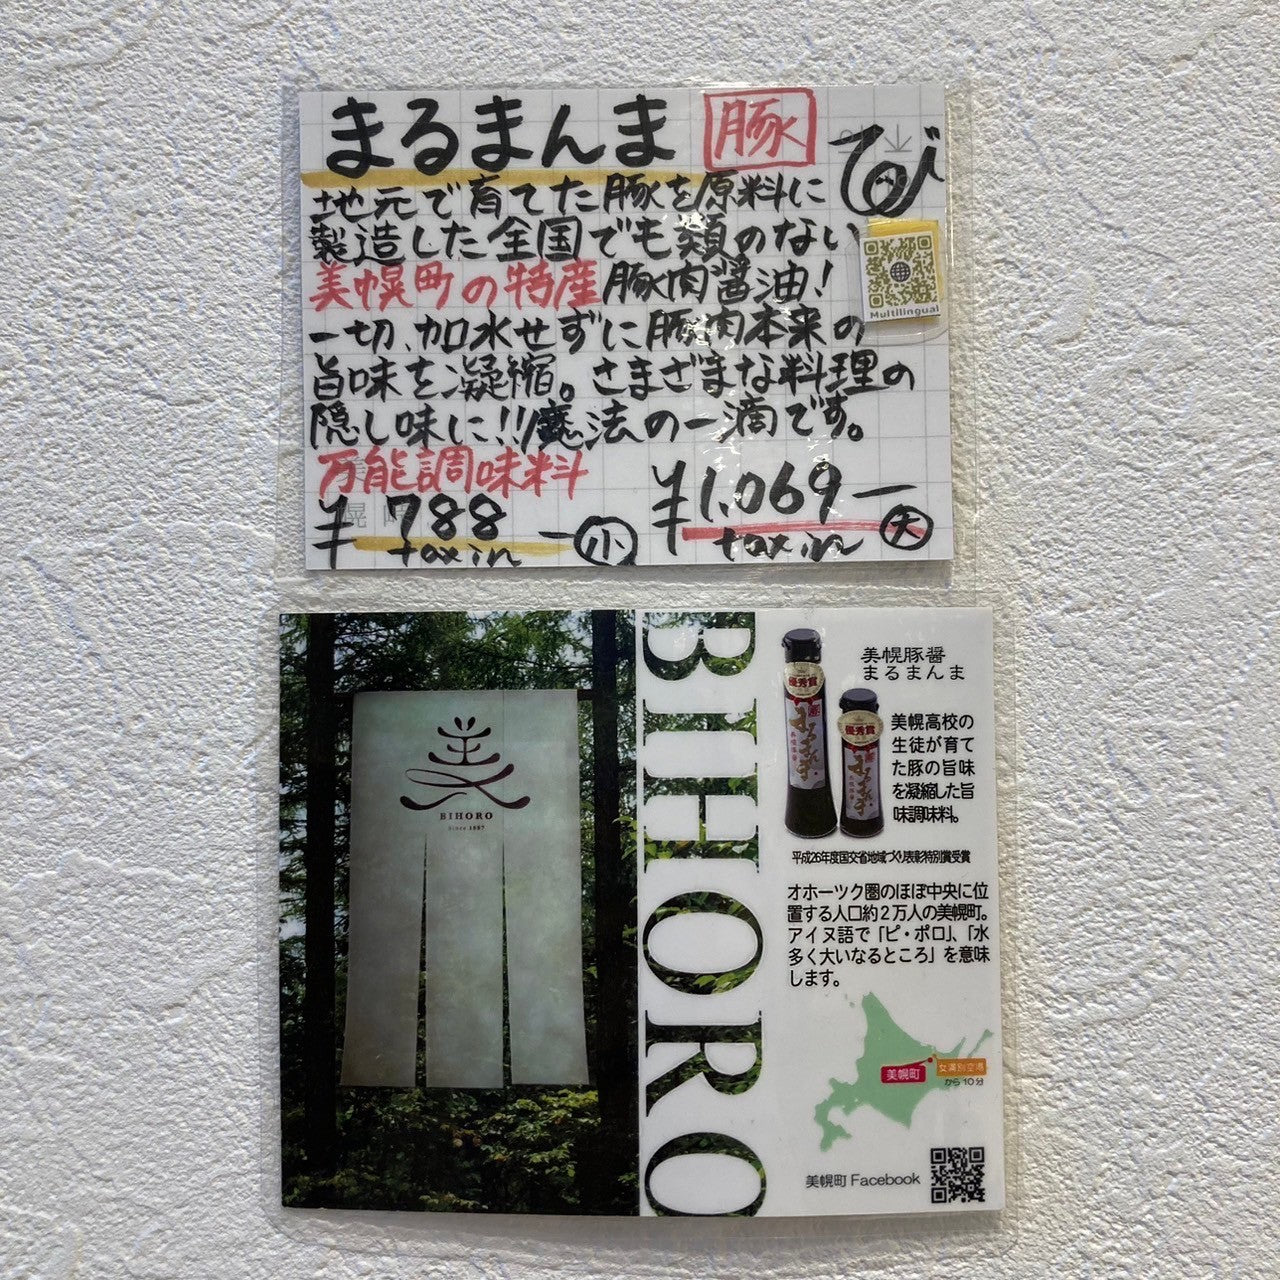 まるまんま 豚
地元で育てた豚を原料に
製造した全国でも類のない
美幌町の特産豚肉醤油!
一切、加水せずに豚肉本来の
旨味を凝縮。さまざまな料理の
隠し味に!!魔法の一滴です。
万能調味料
¥788-小
tax in
¥1,069-大
tax in
Multilingual
美
BIHORO
Since 1887
BIHORO
美幌豚醤
まるまんま
優秀賞
まるまんま
優秀賞
まるまんま
美幌高校の
生徒が育て
た豚の旨味
を凝縮した旨
味調味料。
平成26年度国交省地域づくり表彰特別賞受賞
オホーツク圏のほぼ中央に位
置する人口約2万人の美幌町。
アイヌ語で「ピ・ポロ」、「水
多く大いなるところ」を意味
します。
美幌町
女満別空港
から10分
美幌町 Facebook